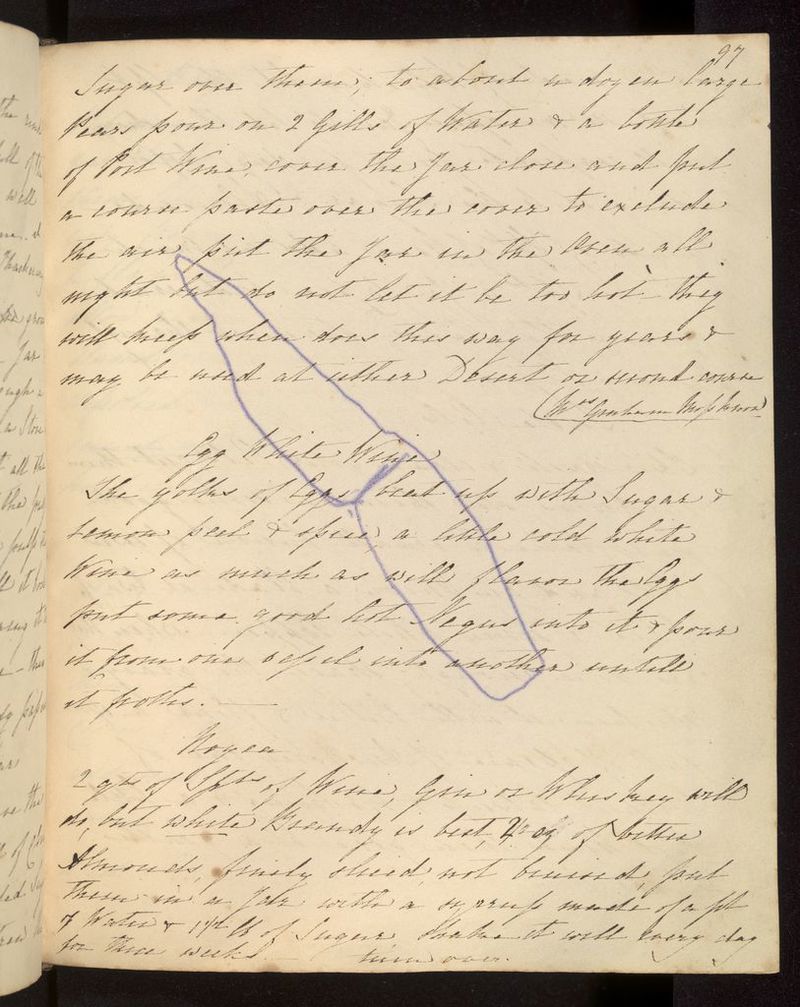 97
Sugar over them; to about a dozen large
Pears pour on 2 Gills of Water & a bottle
of Port Wine, cover the Jar close and put
a course paste over the cover to exclude
the air, put the Jar in the Oven all
night but do not let it be too hot they
will keep when does this way for years &
may be used at either Desert or second course
(Mrs Graham
Egg White Wine
The yolks of Eggs beat up with Sugar &
lemon peel & spice a little cold white
Wine as much as will flavor the Eggs
put some good hot Negus into it & pour
it from one vessel into another untill
it froths.
Noyea
2 qts of Spts of Wine, Gin or Whiskey will
do, but white Brandy is best, oz of bitter
Almonds, finely sliced, not bruised, put
them in a Jar with a syrrup made of a pt
of Water & of Sugar Shake it well every day
for three weeks — turn over.